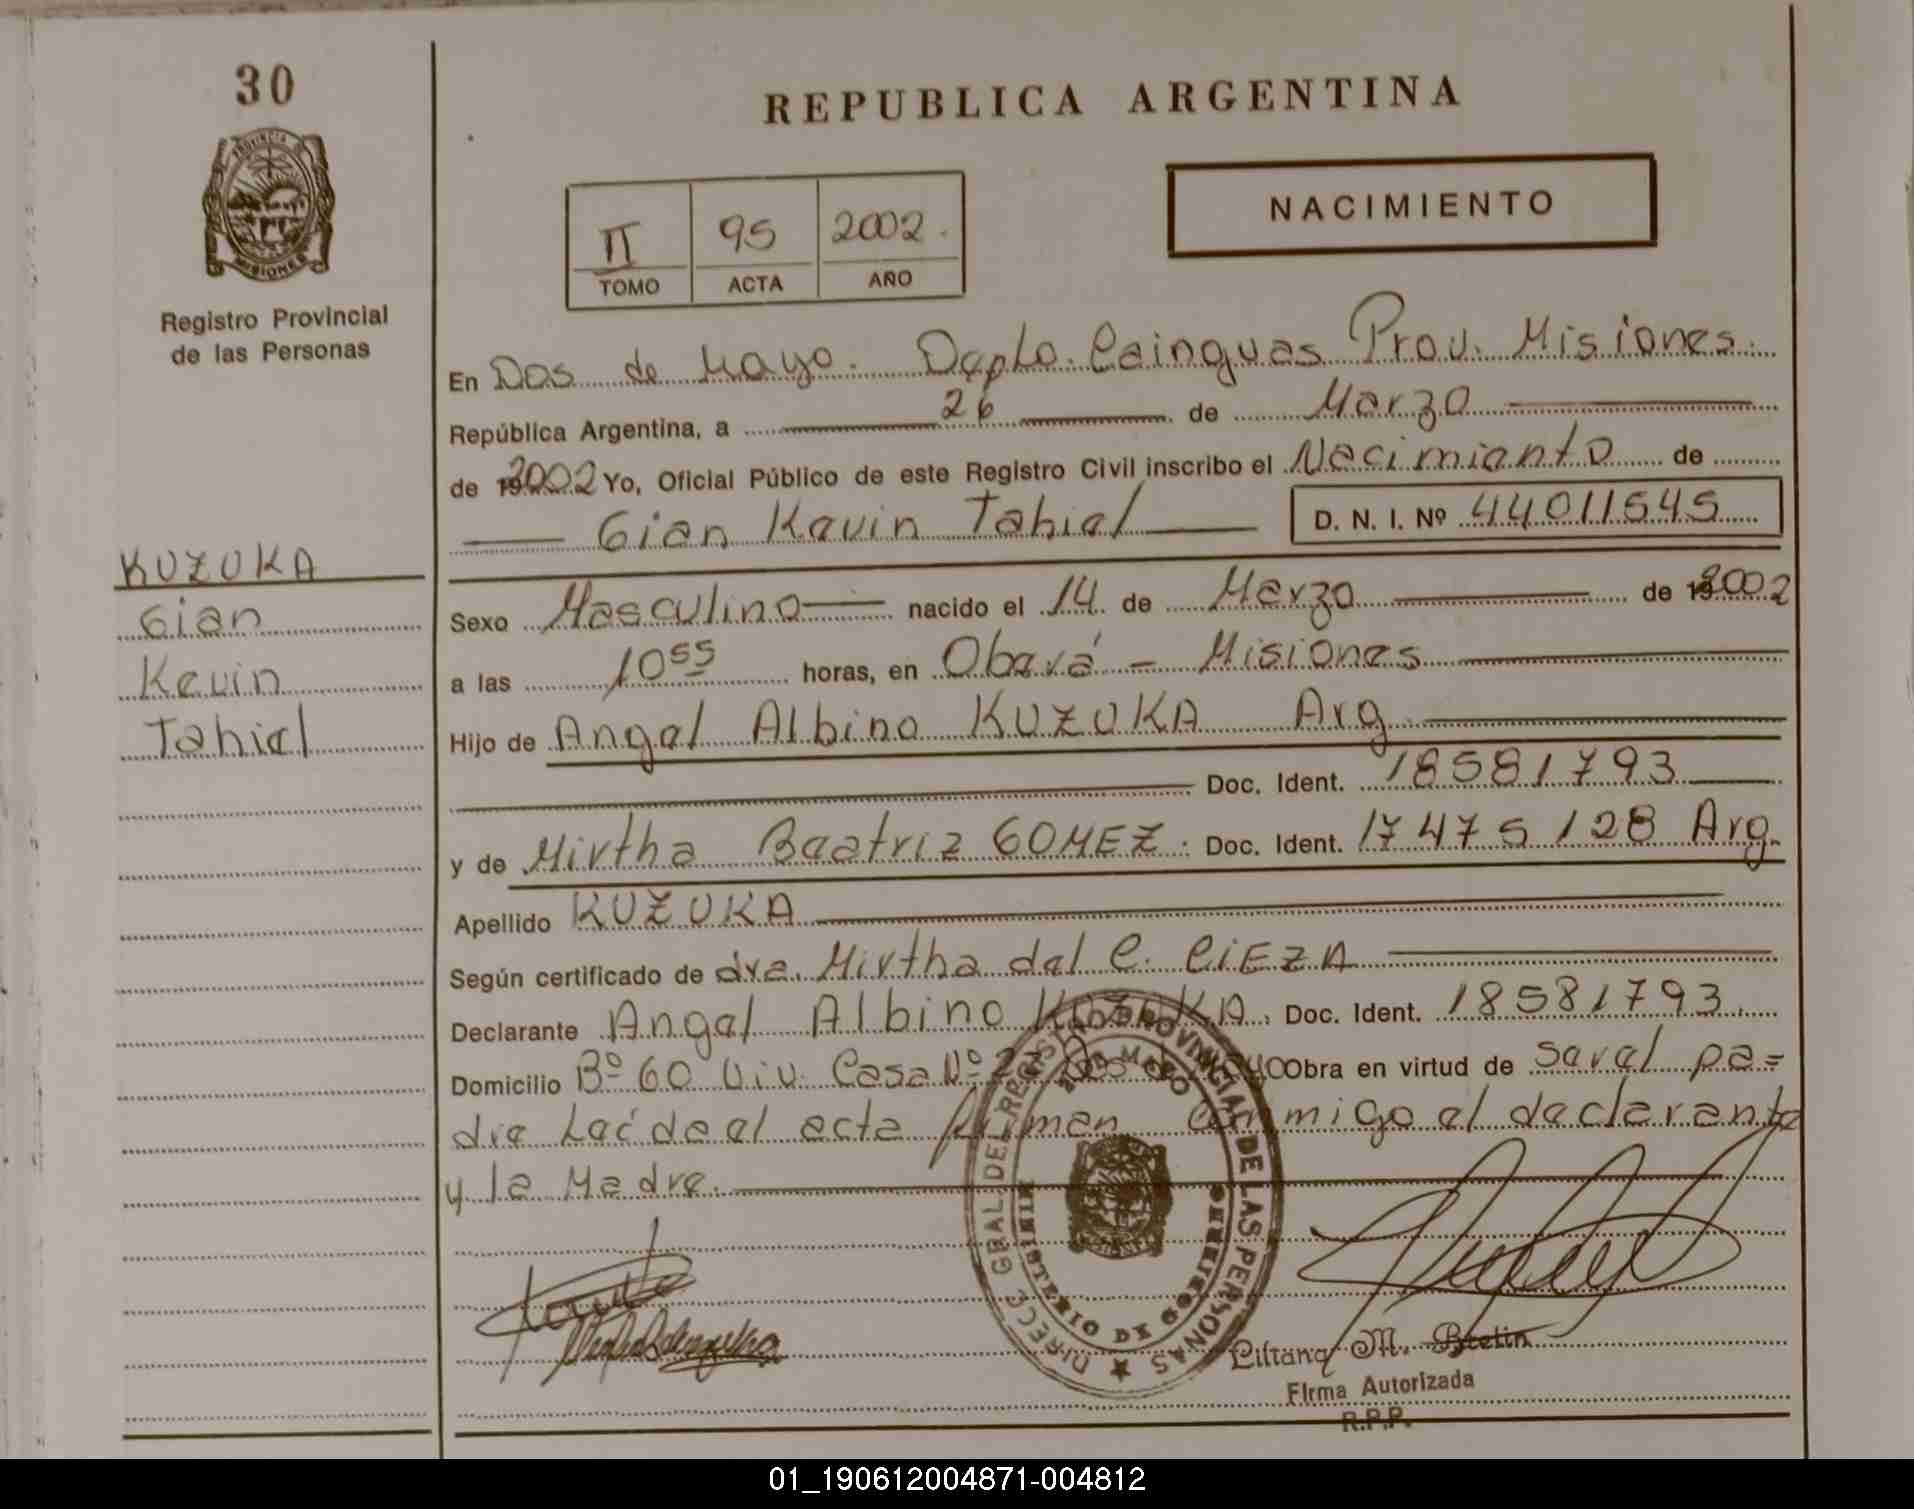 30
PROVINCIA D
MISIONES
Registro Provincial
de las Personas
KUZUKA
Gian
Kevin
Tahiel
REPUBLICA ARGENTINA
II 95 2002.
TOMO ACTA AÑO
NACIMIENTO
En Dos de Mayo. Dpto. Cainguas Prov. Misiones.
República Argentina, a 26 de Marzo
de 2002 Yo, Oficial Público de este Registro Civil inscribo el Nacimiento de
Gian Kevin Tahiel D. N. I. Nº 44011545
Sexo Masculino nacido el 14 de Marzo de 192002
a las 10 55 horas, en Oberá - Misiones
Hijo de Angel Albino KUZUKA Arg
Doc. Ident. 18581793
y de Mirtha Beatriz GOMEZ. Doc. Ident. 17475128 Arg.
Apellido KUZUKA
Según certificado de dra. Mirtha del C. CIEZA
Declarante Angel Albino KUZUKA. Doc. Ident. 18581793
Domicilio Bº 60 Viv. Casa Nº Dos de Mayo Obra en virtud de ser el pa=
dre Leída el acta firman conmigo el declarante
y la Madre.
DIRECC. GRAL. DEL REGISTRO PROVINCIAL DE LAS PERSONAS
DOS DE MAYO
MINISTERIO DE GOBIERNO
MISIONES
Liliana M.
Firma Autorizada
R.P.P.
01_190612004871-004812